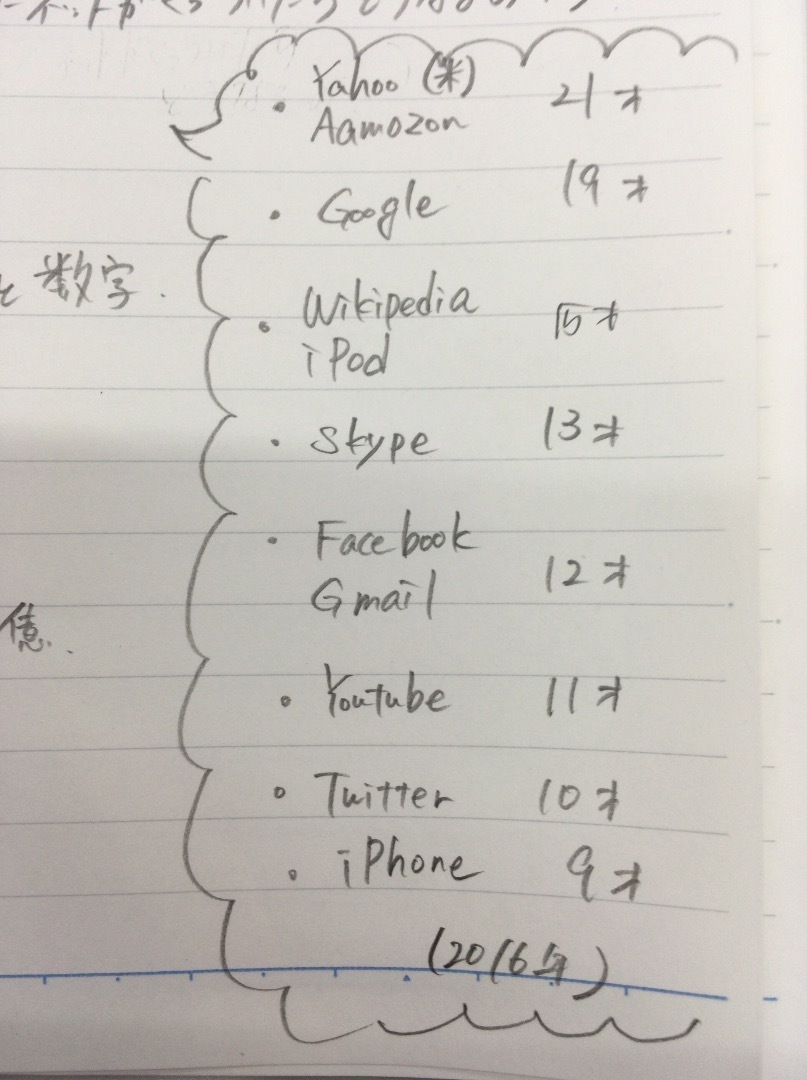 ・Yahoo (米) 21才
Aamozon
・Google 19才
数字.
・Wikipedia 15才
iPod
・Skype 13才
・Facebook
Gmail 12才
億.
・Youtube 11才
・Twitter 10才
・iPhone 9才
(2016年)